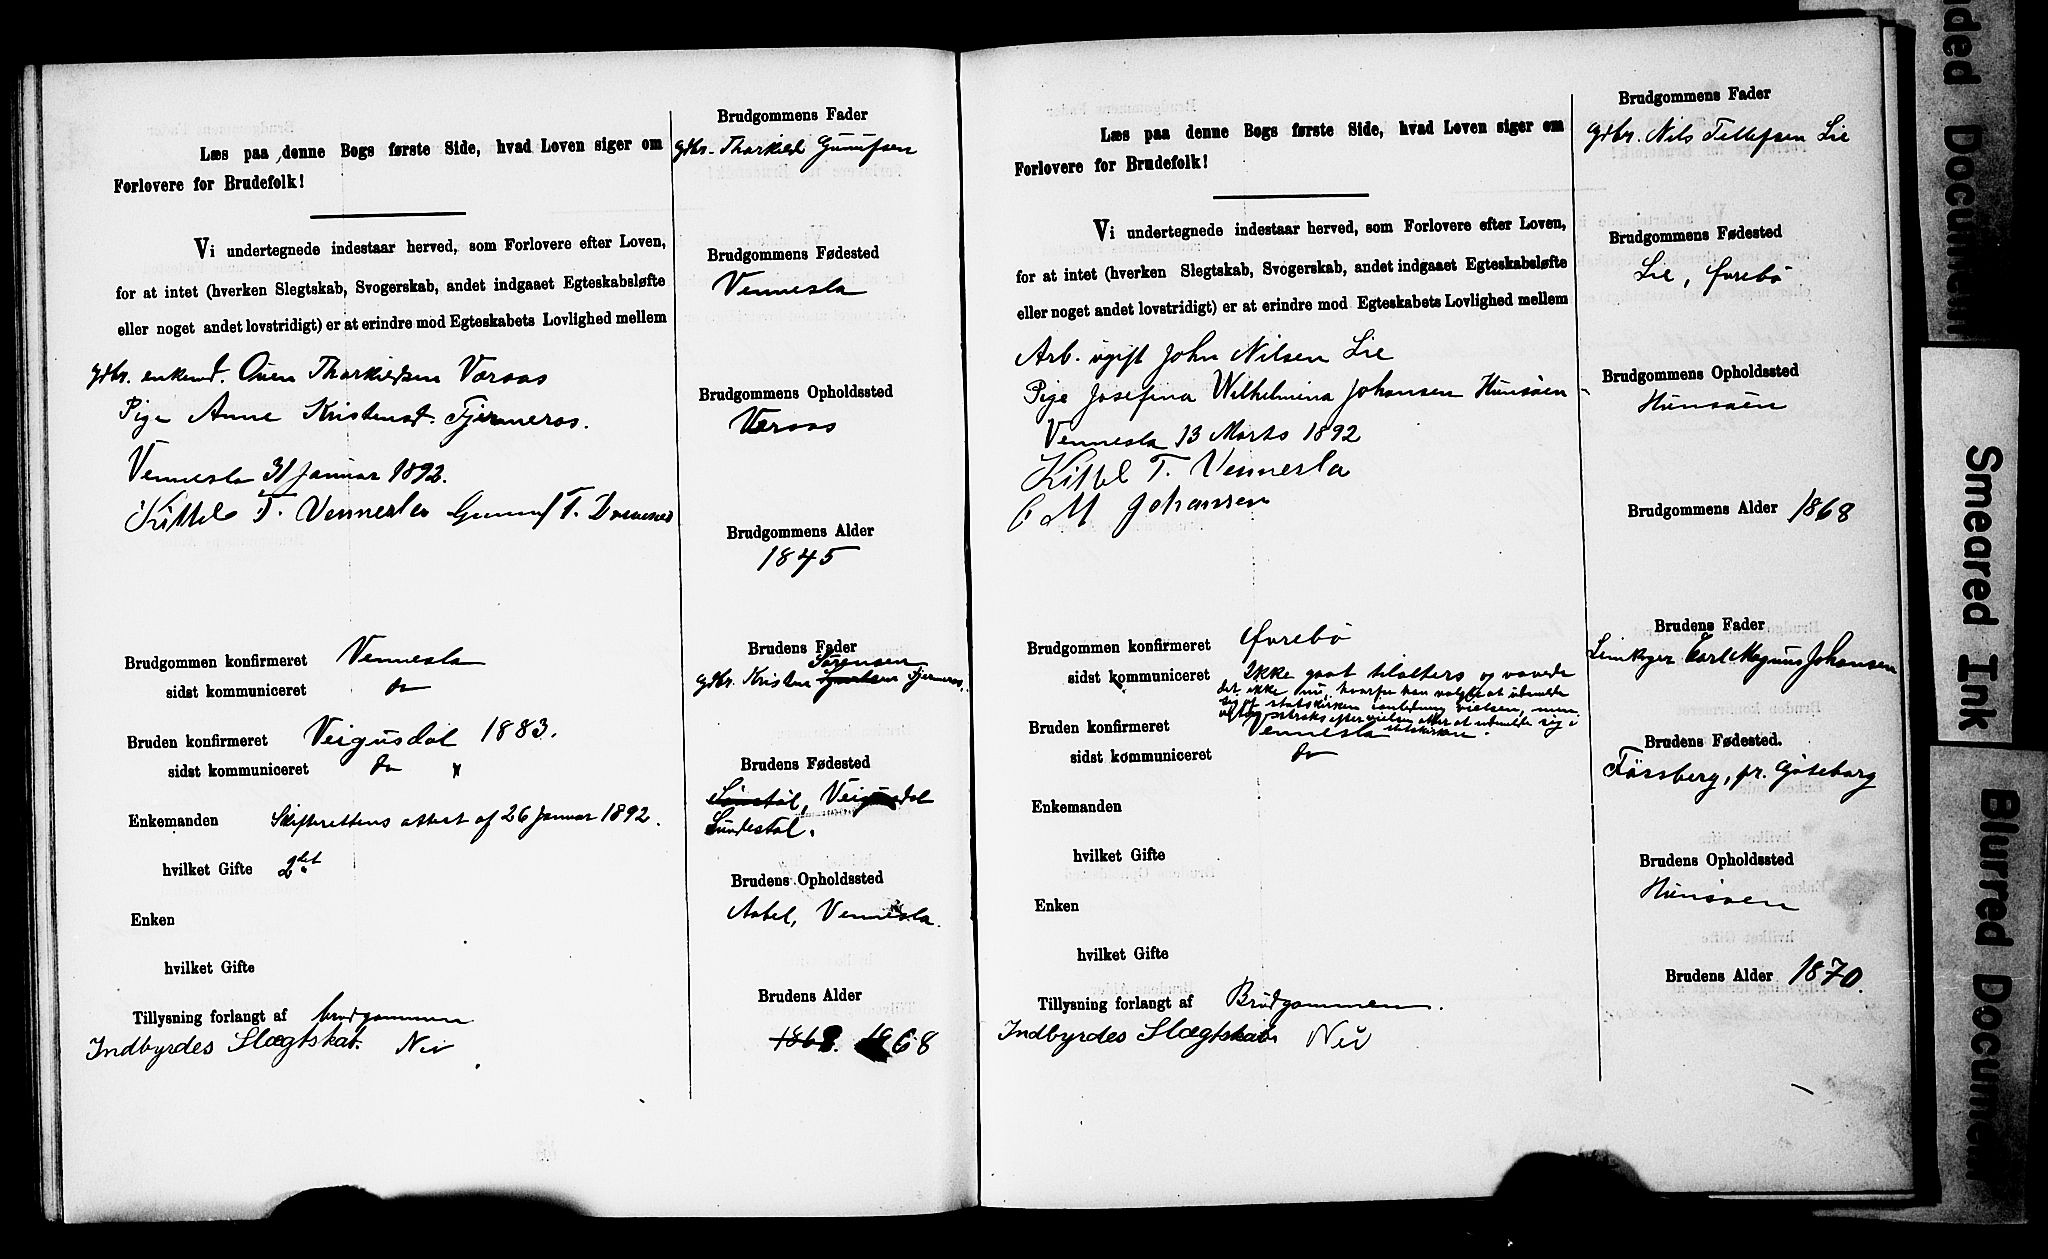 Læs paa denne Bogs første Side, hvad Loven siger om
Forlovere for Brudefolk!
Vi undertegnede indestaar herved, som Forlovere efter Loven,
for at intet (hverken Slegtskab, Svogerskab, andet indgaaet Egteskabsløfte
eller noget andet lovstridigt) er at erindre mod Egteskabets Lovlighed mellem
gdbr. enkemd. Ouen Tharkildsen Væraas
Pige Anne Kristensd. Fjermeros.
Vennesla 31 Januar 1892.
Kittel T. Vennesla Gunuf T.
Brudgommen konfirmeret Vennesla
sidst kommuniceret do
Bruden konfirmeret Veigusdal 1883.
sidst kommuniceret do "
Enkemanden Skifterettens attest af 26 Januar 1892.
hvilket Gifte 2det
Enken
hvilket Gifte
Tillysning forlangt af brudgommen
Indbyrdes Slægtskab. Nei
Brudgommens Fader
gdbr. Tharkild Gunufsen
Brudgommens Fødested
Vennesla
Brudgommens Opholdssted
Væraas
Brudgommens Alder
1845
Brudens Fader
Sørensen
gdbr. Kristen Fjermeros.
Brudens Fødested
Veigusdal
Lundestøl.
Brudens Opholdssted
Aabel, Vennesla.
Brudens Alder
1868. 1868
Læs paa denne Bogs første Side, hvad Loven siger om
Forlovere for Brudefolk!
Vi undertegnede indestaar herved, som Forlovere efter Loven,
for at intet (hverken Slegtskab, Svogerskab, andet indgaaet Egteskabsløfte
eller noget andet lovstridigt) er at erindre mod Egteskabets Lovlighed mellem
Arb. ugift John Nilsen Lie
Pige Josefina Wilhelmina Johansen Hunsøen
Vennesla 13 Marts 1892
Kittel T. Vennesla
C M Johansen
Brudgommen konfirmeret Øvrebø
sidst kommuniceret Ikke gaat tilalters og vovede
det ikke nu, hvorfor han valgte at udmelde
sig af statskirken i anledning vielsen, men
vilde straks efter vielsen atter at indmelde sig i
statskirken.
Bruden konfirmeret Vennesla
sidst kommuniceret do
Enkemanden
hvilket Gifte
Enken
hvilket Gifte
Tillysning forlangt af Brudgommen.
Indbyrdes Slægtskab. Nei
Brudgommens Fader
gdbr. Nils Tellefsen Lie
Brudgommens Fødested
Lie, Øvrebø
Brudgommens Opholdssted
Hunsøen
Brudgommens Alder 1868
Brudens Fader
Limkoger Carl Magnus Johansen
Brudens Fødested.
Fässberg, pr. Göteborg
Brudens Opholdssted
Hunsøen
Brudens Alder 1870.
ded Document
Smeared Ink
Blurred Document